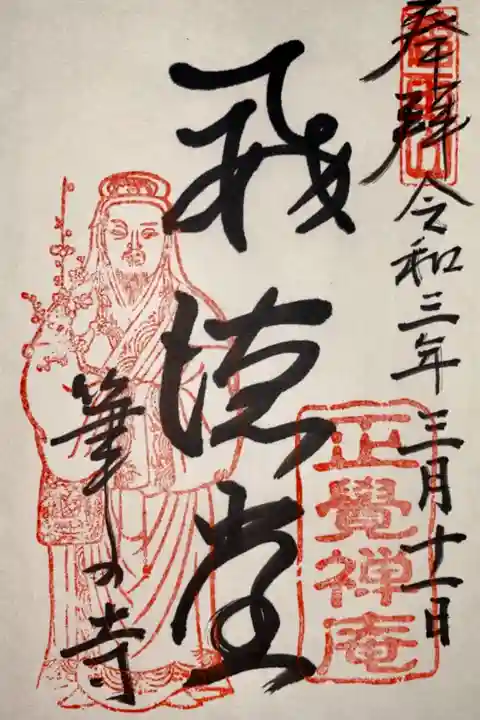 奉拝 令和三年三月十一日
威徳堂
筆の寺
正覺禅庵